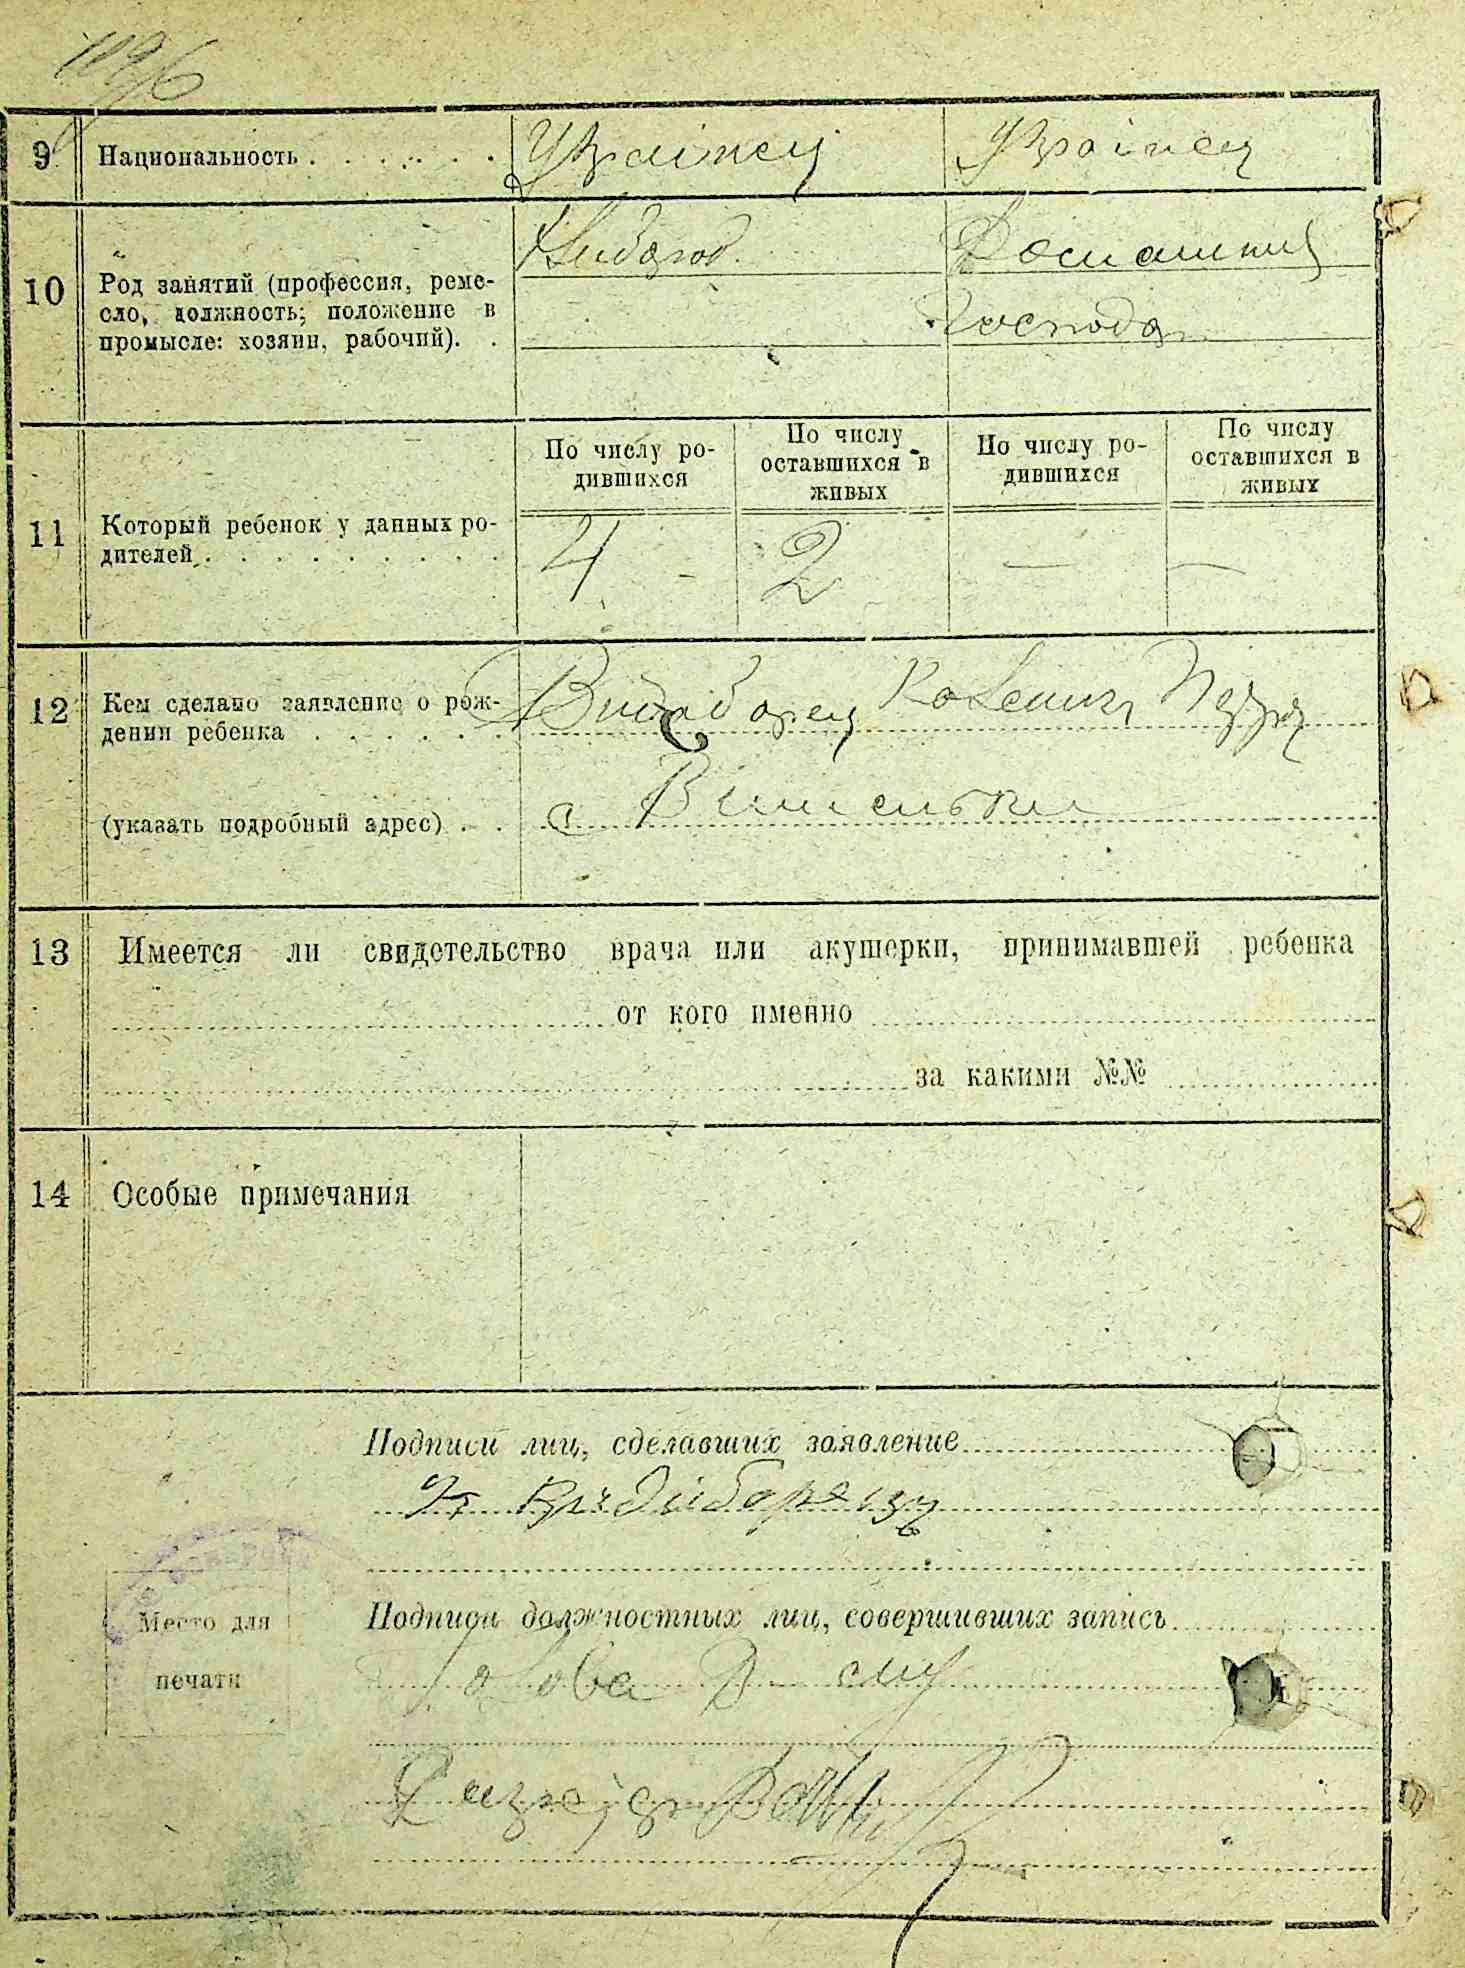 1096
9 Национальность . . . . . . Украінец Украінец
10 Род занятий (профессия, реме-
сло, должность; положение в
промысле: хозяин, рабочий). .
Хлибороб. Домашний
господар
11 Который ребенок у данных ро-
дителей . . . . . . . . .
По числу ро-
дившихся
По числу
оставшихся в
живых
По числу ро-
дившихся
По числу
оставшихся в
живых
4 - 2 — —
12 Кем сделано заявление о рож-
дении ребенка . . . . . .
(указать подробный адрес) . .
с Вишеньки
13 Имеется ли свидетельство врача или акушерки, принимавшей ребенка
от кого именно
за какими №№
14 Особые примечания
Подписи лиц, сделавших заявление
Место для
печати
Подписи должностных лиц, совершивших запись
Голова